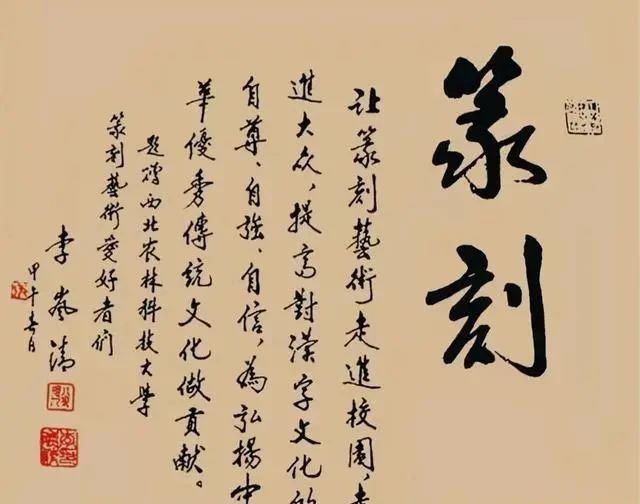 篆刻
让篆刻藝術走進校園，走
進大众，提高對漢字文化的
自尊、自強、自信，為弘揚中
華優秀傳統文化做貢獻。
題贈西北农林科技大學
篆刻藝術愛好者們
李岚清
甲午春日